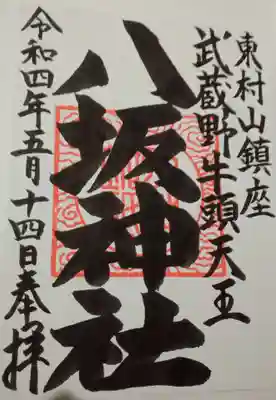 東村山鎮座
武蔵野牛頭天王
八坂神社
令和四年五月十四日奉拝